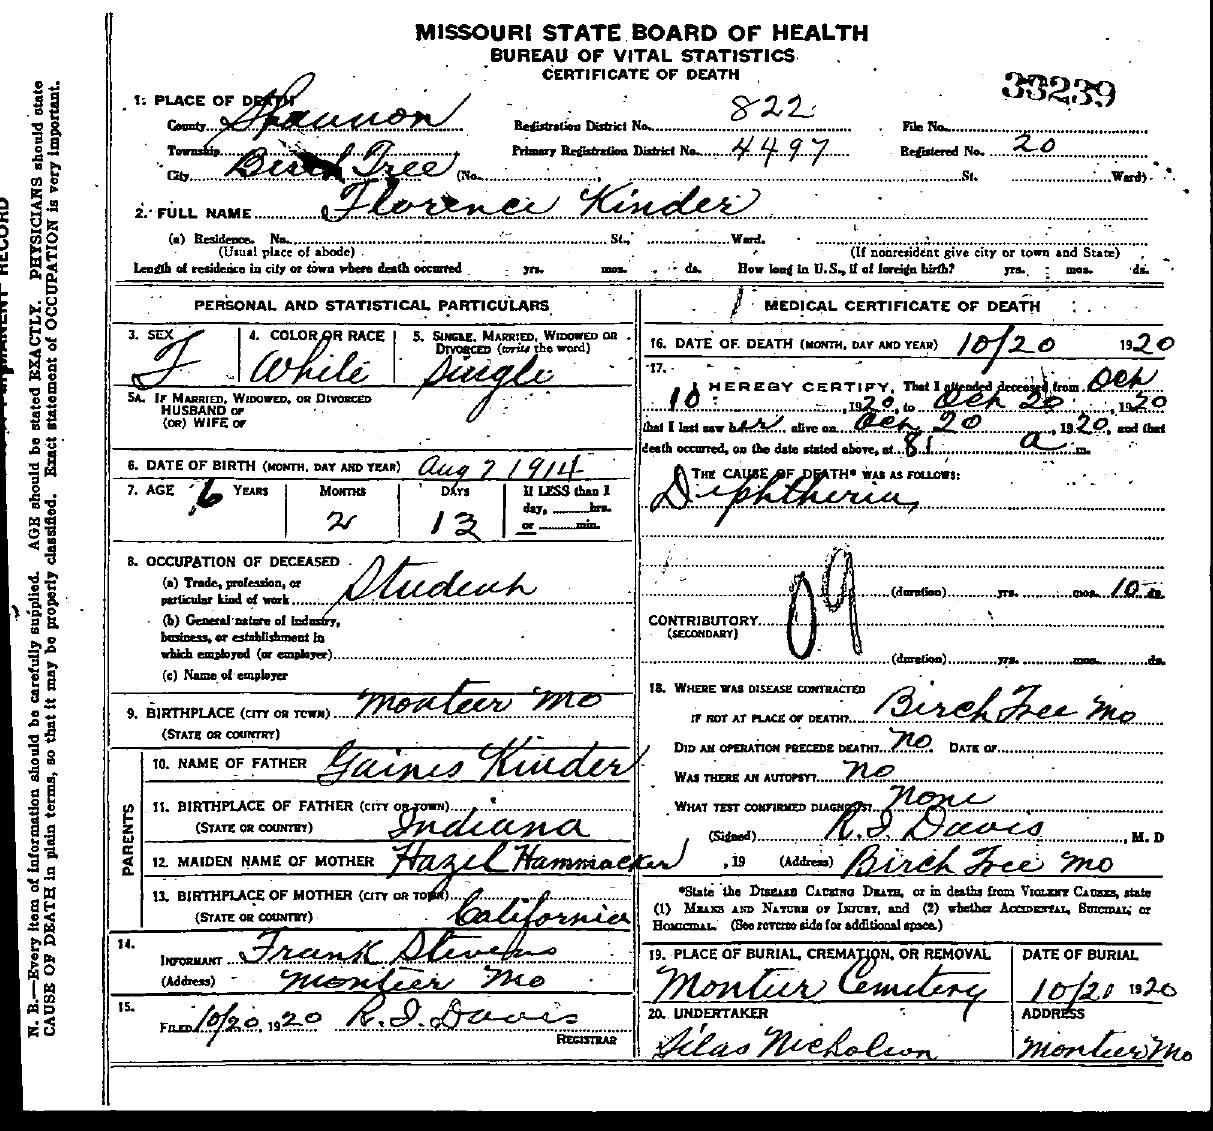 MISSOURI STATE BOARD OF HEALTH
BUREAU OF VITAL STATISTICS
CERTIFICATE OF DEATH
33239
1. PLACE OF DEATH
County Shannon Registration District No. 822 File No.
Township Primary Registration District No. 4497 Registered No. 20
City Birch Tree (No. , St. Ward)
2. FULL NAME Florence Kinder
(a) Residence. No. St., Ward.
(Usual place of abode) (If nonresident give city or town and State)
Length of residence in city or town where death occurred yrs. mos. ds. How long in U.S., if of foreign birth? yrs. mos. ds.
PERSONAL AND STATISTICAL PARTICULARS
3. SEX 4. COLOR OR RACE 5. SINGLE, MARRIED, WIDOWED OR
DIVORCED (write the word)
F White Single
5A. IF MARRIED, WIDOWED, OR DIVORCED
HUSBAND OF
(OR) WIFE OF
6. DATE OF BIRTH (MONTH, DAY AND YEAR) Aug 7 1914
7. AGE YEARS MONTHS DAYS If LESS than 1
day, hrs.
or min.
6 2 13
8. OCCUPATION OF DECEASED
(a) Trade, profession, or
particular kind of work Student
(b) General nature of industry,
business, or establishment in
which employed (or employer)
(c) Name of employer
9. BIRTHPLACE (CITY OR TOWN) Monteer Mo
(STATE OR COUNTRY)
PARENTS
10. NAME OF FATHER Gaines Kinder
11. BIRTHPLACE OF FATHER (CITY OR TOWN)
(STATE OR COUNTRY) Indiana
12. MAIDEN NAME OF MOTHER Hazel Hammacker
13. BIRTHPLACE OF MOTHER (CITY OR TOWN)
(STATE OR COUNTRY) California
14.
INFORMANT Frank Stevens
(Address) Montier Mo
15.
FILED 10/20, 1920 R. I. Davis
REGISTRAR
MEDICAL CERTIFICATE OF DEATH
16. DATE OF DEATH (MONTH, DAY AND YEAR) 10/20 1920
17.
I HEREBY CERTIFY, That I attended deceased from Oct
10, 1920, to Oct 20, 1920
that I last saw her alive on Oct 20, 1920, and that
death occurred, on the date stated above, at a m.
THE CAUSE OF DEATH* WAS AS FOLLOWS:
Diphtheria
09
(duration) yrs. mos. 10 ds.
CONTRIBUTORY
(SECONDARY)
(duration) yrs. mos. ds.
18. WHERE WAS DISEASE CONTRACTED
IF NOT AT PLACE OF DEATH? Birch Tree Mo
DID AN OPERATION PRECEDE DEATH? no DATE OF
WAS THERE AN AUTOPSY? no
WHAT TEST CONFIRMED DIAGNOSIS? none
(Signed) R. I. Davis, M. D
, 19 (Address) Birch Tree Mo
*State the DISEASE CAUSING DEATH, or in deaths from VIOLENT CAUSES, state
(1) MEANS AND NATURE OF INJURY, and (2) whether ACCIDENTAL, SUICIDAL, or
HOMICIDAL. (See reverse side for additional space.)
19. PLACE OF BURIAL, CREMATION, OR REMOVAL DATE OF BURIAL
Montier Cemetery 10/21 1920
20. UNDERTAKER ADDRESS
Silas Nicholson Montier Mo
N. B.—Every item of information should be carefully supplied. AGE should be stated EXACTLY. PHYSICIANS should state
CAUSE OF DEATH in plain terms, so that it may be properly classified. Exact statement of OCCUPATION is very important.